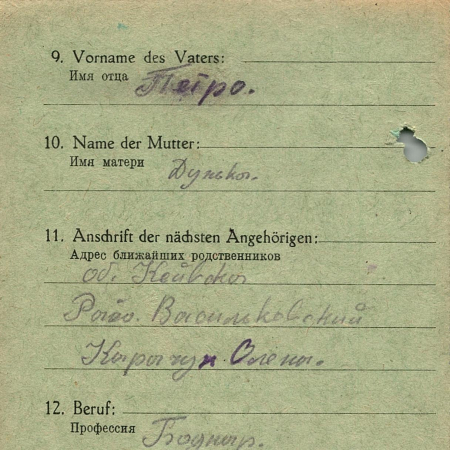 9. Vorname des Vaters:
Имя отца
Петро.
10. Name der Mutter:
Имя матери
Дунька.
11. Anschrift der nächsten Angehörigen:
Адрес ближайших родственников
об. Кейвска
Райо. Васильковский
Карачун Олена.
12. Beruf:
Профессия
Боднар.